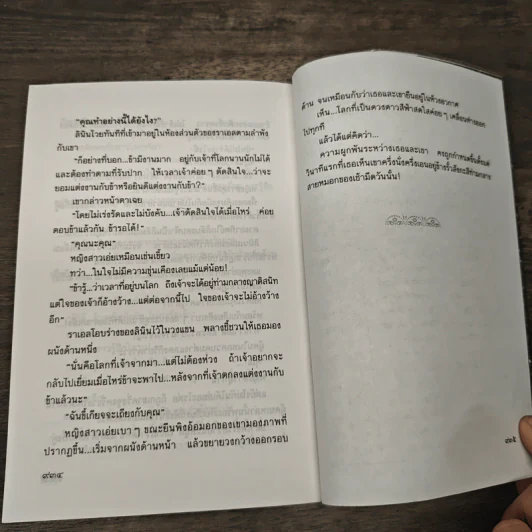 "คุณทำอย่างนี้ได้ยังไง?"
ลินินโวยทันทีที่เข้ามาอยู่ในห้องส่วนตัวของราเอลตามลำพัง
กับเขา
"ก็อย่างที่บอก...ข้ามีงานมาก อยู่กับเจ้าที่โลกนานนักไม่ได้
และต้องทำตามที่รับปาก ให้เวลาเจ้าค่อยๆ ตัดสินใจ...ว่าจะ
ยอมแต่งงานกับข้าหรือยินดีแต่งงานกับข้า?"
เขากล่าวหน้าตาเฉย
"โดยไม่เร่งรัดและไม่บังคับ...เจ้าตัดสินใจได้เมื่อไหร่ ค่อย
ตอบข้าแล้วกัน ข้ารอได้!"
"คุณนะคุณ"
หญิงสาวเอ่ยเหมือนเข่นเขี้ยว
ทว่า...ในใจไม่มีความขุ่นเคืองเลยแม้แต่น้อย!
"ข้ารู้...ว่าเวลาที่อยู่บนโลก ถึงเจ้าจะได้อยู่ท่ามกลางญาติสนิท
แต่ใจของเจ้าก็อ้างว้าง...แต่ต่อจากนี้ไป ใจของเจ้าจะไม่อ้างว้าง
อีก"
ราเอลโอบร่างของลินินไว้ในวงแขน พลางชี้ชวนให้เธอมอง
ผนังด้านหนึ่ง
"นั่นคือโลกที่เจ้าจากมา...แต่ไม่ต้องห่วง ถ้าเจ้าอยากจะ
กลับไปเยี่ยมเมื่อไหร่ข้าจะพาไป...หลังจากที่เจ้าตกลงแต่งงานกับ
ข้าแล้วนะ"
"ฉันขี้เกียจจะเถียงกับคุณ"
หญิงสาวเอ่ยเบาๆ ขณะยืนพิงอ้อมอกของเขามองภาพที่
ปรากฏขึ้น...เริ่มจากผนังด้านหน้า แล้วขยายวงกว้างออกรอบ
๙๓๔
ด้าน จนเหมือนกับว่าเธอและเขายืนอยู่ในห้วงอวกาศ
เห็น...โลกที่เป็นดวงดาวสีฟ้าสดใสค่อยๆ เคลื่อนห่างออก
ไปทุกที
แล้วได้แต่คิดว่า...
ความผูกพันระหว่างเธอและเขา คงถูกกำหนดขึ้นตั้งแต่
วินาทีแรกที่เธอเห็นเขาครึ่งนั่งครึ่งนอนอยู่ข้างรั้วสังกะสีท่ามกลาง
สายหมอกของเช้ามืดวันนั้น!
๙๓๕